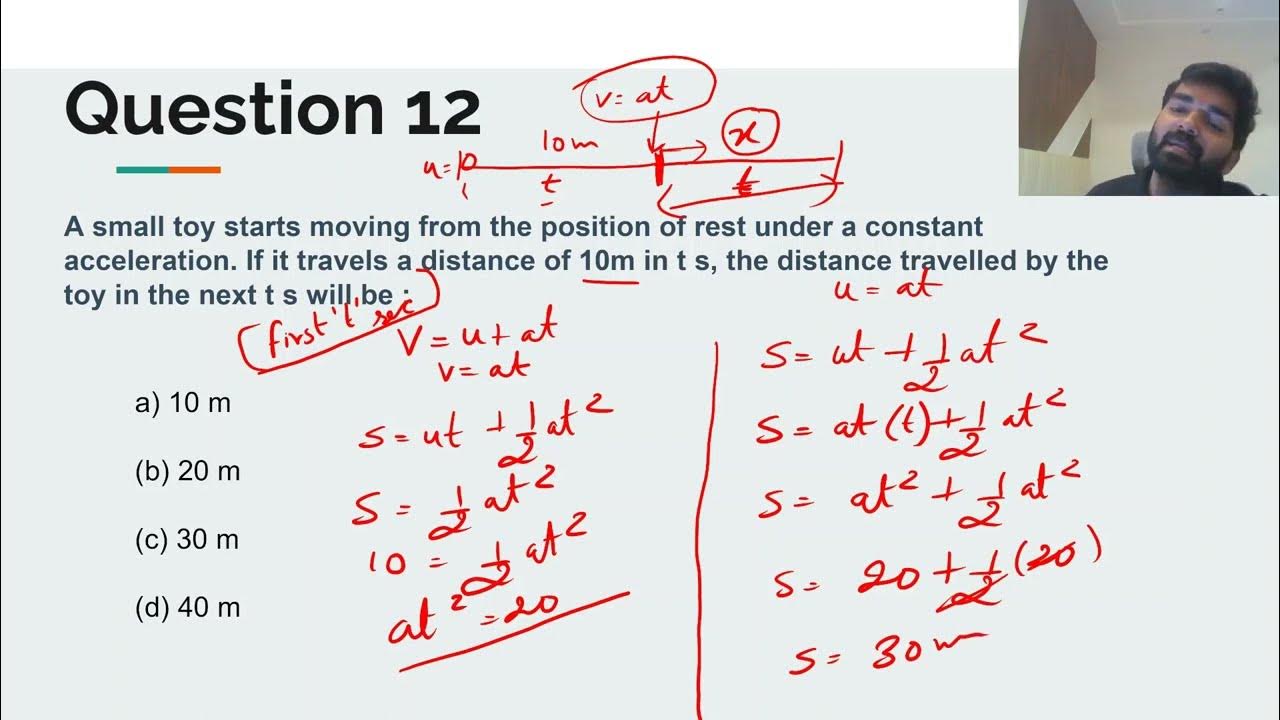 Question 12
v = at
10m
x
u = 0
t
t
A small toy starts moving from the position of rest under a constant
acceleration. If it travels a distance of 10m in t s, the distance travelled by the
toy in the next t s will be :
first 't' sec
V = u + at
v = at
S = ut + 1/2 at²
S = 1/2 at²
10 = 1/2 at²
at² = 20
u = at
S = ut + 1/2 at²
S = at (t) + 1/2 at²
S = at² + 1/2 at²
S = 20 + 1/2 (20)
S = 30m
a) 10 m
(b) 20 m
(c) 30 m
(d) 40 m